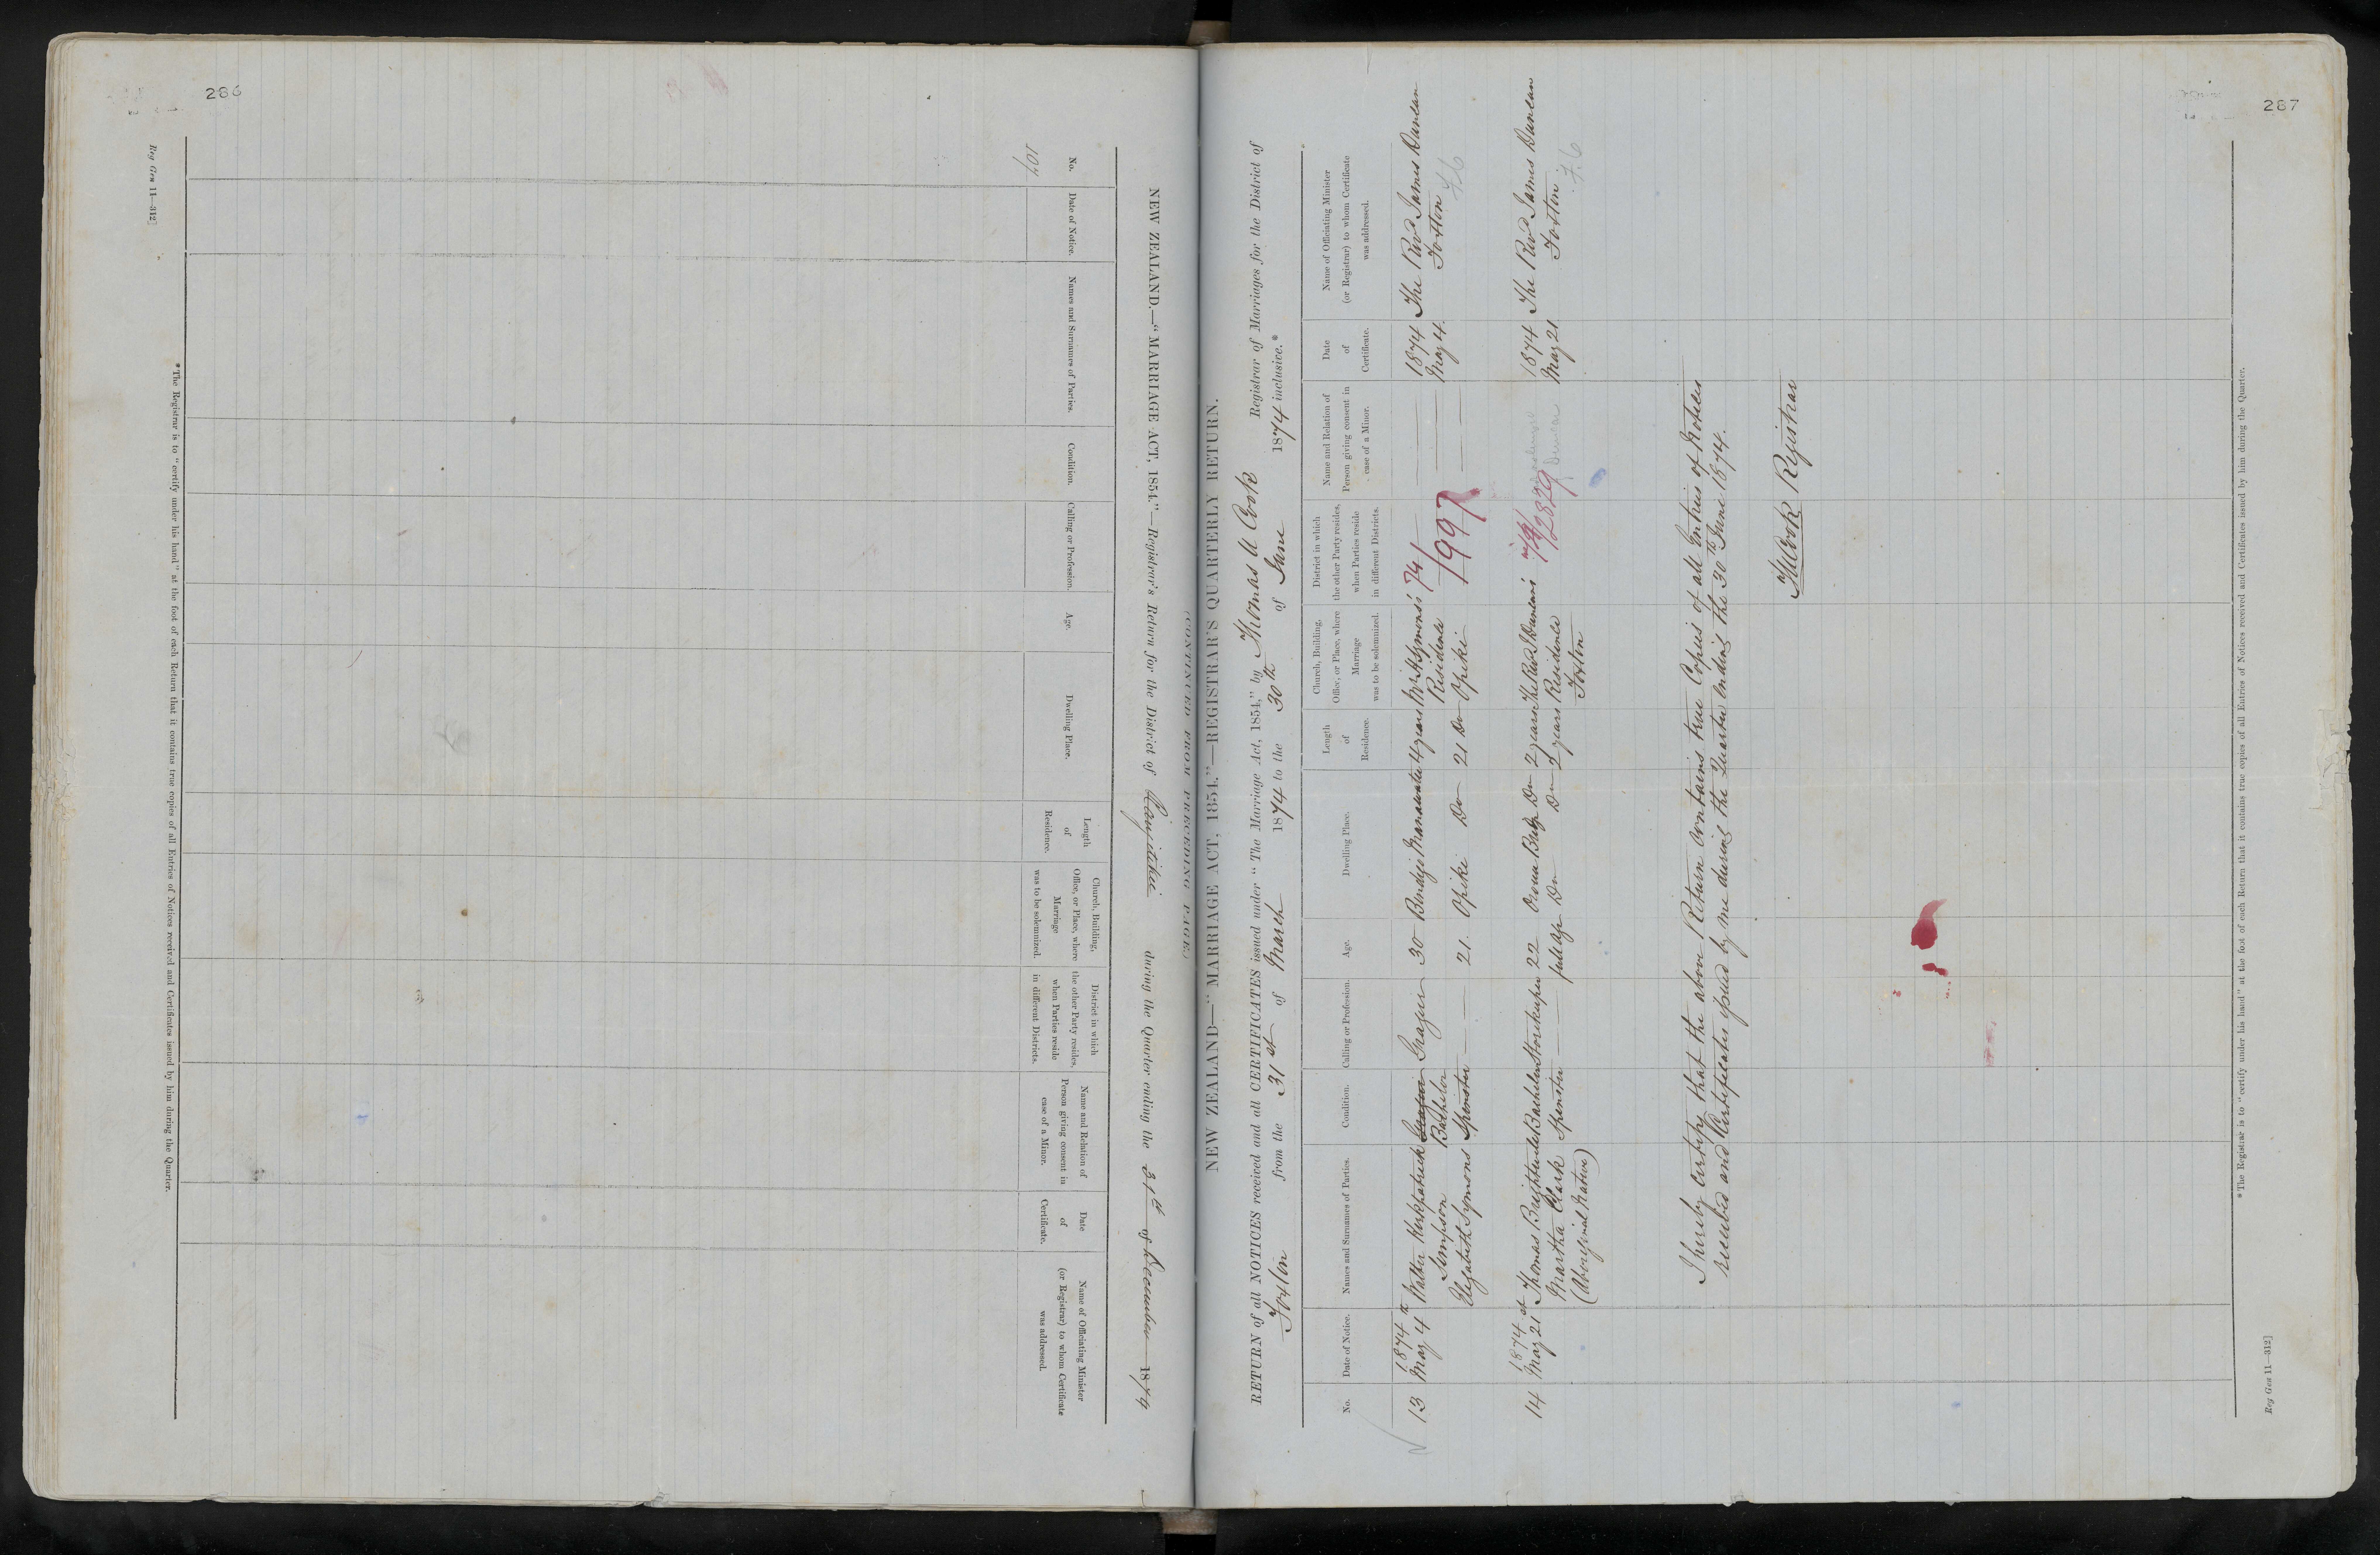 286
Reg Gen 11—312]
NEW ZEALAND.—"MARRIAGE ACT, 1854."—Registrar's Return for the District of Rangitikei during the Quarter ending the 31st of December 1874
(CONTINUED FROM PRECEDING PAGE)
No.
Date of Notice.
Names and Surnames of Parties.
Condition.
Calling or Profession.
Age.
Dwelling Place.
Length
of
Residence.
Church, Building,
Office, or Place, where
Marriage
was to be solemnized.
District in which
the other Party resides,
when Parties reside
in different Districts.
Name and Relation of
Person giving consent in
case of a Minor.
Date
of
Certificate.
Name of Officiating Minister
(or Registrar) to whom Certificate
was addressed.
*The Registrar is to "certify under his hand" at the foot of each Return that it contains true copies of all Entries of Notices received and Certificates issued by him during the Quarter.
287
NEW ZEALAND—"MARRIAGE ACT, 1854."—REGISTRAR'S QUARTERLY RETURN.
RETURN of all NOTICES received and all CERTIFICATES issued under "The Marriage Act, 1854," by Thomas U Cook Registrar of Marriages for the District of
Foxton from the 31st of March 1874 to the 30th of June 1874 inclusive.*
No.
Date of Notice.
Names and Surnames of Parties.
Condition.
Calling or Profession.
Age.
Dwelling Place.
Length
of
Residence.
Church, Building,
Office, or Place, where
Marriage
was to be solemnized.
District in which
the other Party resides,
when Parties reside
in different Districts.
Name and Relation of
Person giving consent in
case of a Minor.
Date
of
Certificate.
Name of Officiating Minister
(or Registrar) to whom Certificate
was addressed.
1874 1874
13 May 4th Walter Kirkpatrick Grazier Grazier 30 Manawatu 4 years Mr Symons's 74/ May 4 The Revd James Duncan
Simpson Bachelor Residence 1997 Foxton
Elizabeth Symons Spinster 21. Opiki Do 21 Do Opiki
1874 1874
14 May 21st Thomas Bachelor Storekeeper 22 Do 2 years The Revd J Duncan's 74/2879 May 21 The Revd James Duncan
Martha Clark Spinster full age Do Do 2 years Residence Foxton
(Aboriginal Native) Foxton
I hereby certify that the above Return contains true Copies of all Entries of Notices
received and Certificates issued by me during the Quarter ending the 30th June 1874.
TUCook Registrar
*The Registrar is to "certify under his hand" at the foot of each Return that it contains true copies of all Entries of Notices received and Certificates issued by him during the Quarter.
Reg Gen 11—312]